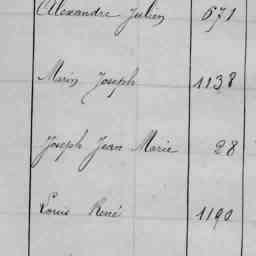 Alexandre Julien 671
Marin Joseph 1138
Joseph Jean Marie 28
Louis René 1190